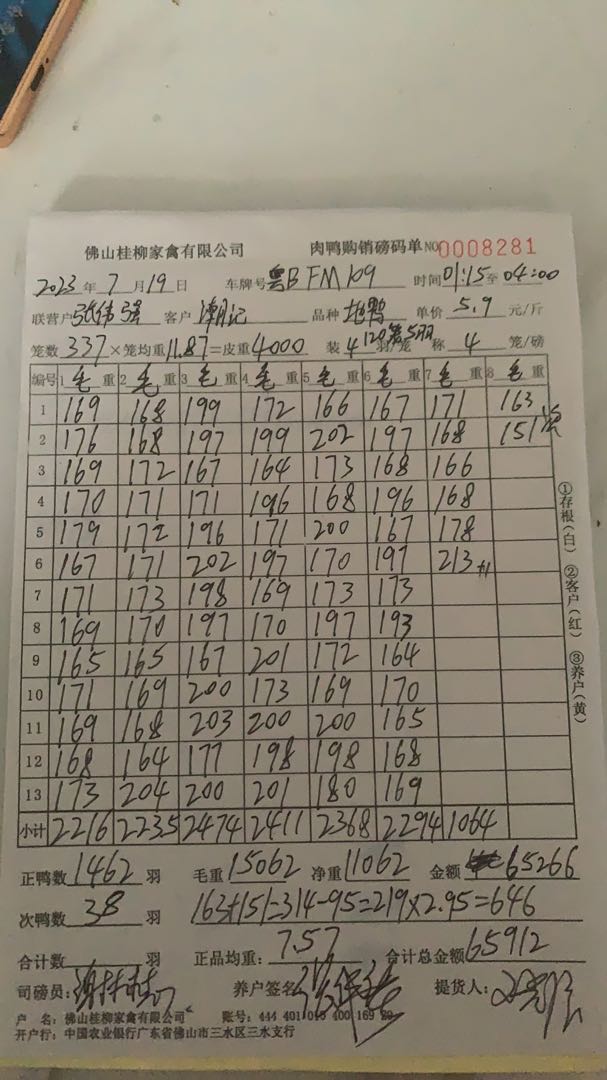 佛山桂柳家禽有限公司 肉鸭购销磅码单 NO 0008281
2023年7月19日 车牌号 粤BFM109 时间 01:15至04:00
联营户 张伟强 客户 品种 单价 5.9 元/斤
笼数 337 ×笼均重 11.87 =皮重 4000 装 4 120笼5羽 羽/笼 称 4 笼/磅
编号 1 毛 重 2 毛 重 3 毛 重 4 毛 重 5 毛 重 6 毛 重 7 毛 重 8 毛 重
1 169 168 199 172 166 167 171 163
2 176 168 197 199 202 197 168 151 次
3 169 172 167 164 173 168 166
4 170 171 171 196 168 196 168
5 179 172 196 171 200 167 178
6 167 171 202 197 170 197 213
7 171 173 198 169 173 173
8 169 170 197 170 197 193
9 165 165 167 201 172 164
10 171 169 200 173 169 170
11 169 168 203 200 200 165
12 168 164 177 198 198 168
13 173 204 200 201 180 169
小计 2216 2235 2474 2411 2368 2294 1064
正鸭数 1462 羽 毛重 15062 净重 11062 金额 65266
次鸭数 38 羽 163+151=314-95=219×2.95=646
合计数 羽 正品均重: 7.57 合计总金额 65912
司磅员: 养户签名 提货人:
户 名: 佛山桂柳家禽有限公司 账号: 444 401 015 400 169
开户行: 中国农业银行广东省佛山市三水区三水支行
①存根(白) ②客户(红) ③养户(黄)